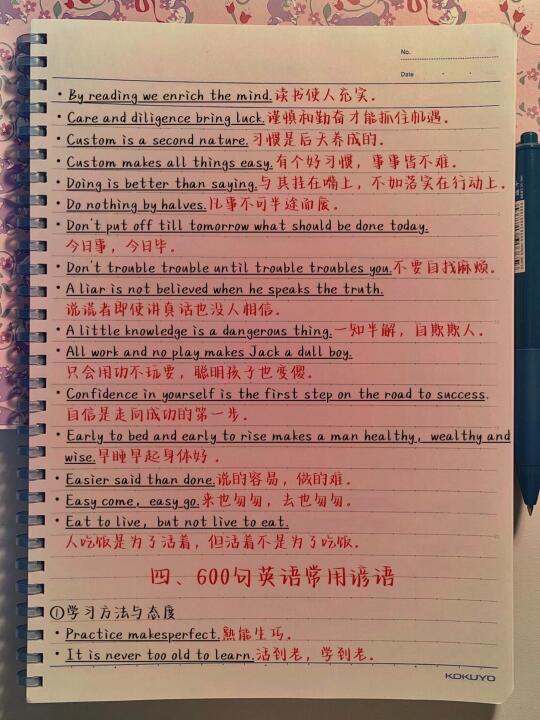 No.
Date
• By reading we enrich the mind.读书使人充实.
• Care and diligence bring luck.谨慎和勤奋才能抓住机遇.
• Custom is a second nature.习惯是后天养成的.
• Custom makes all things easy.有个好习惯，事事皆不难.
• Doing is better than saying.与其挂在嘴上，不如落实在行动上.
• Do nothing by halves.凡事不可半途而废.
• Don't put off till tomorrow what should be done today.
今日事，今日毕.
• Don't trouble trouble until trouble troubles you.不要自找麻烦.
• A liar is not believed when he speaks the truth.
说谎者即使讲真话也没人相信.
• A little knowledge is a dangerous thing.一知半解，自欺欺人.
• All work and no play makes Jack a dull boy.
只会用功不玩耍，聪明孩子也变傻.
• Confidence in yourself is the first step on the road to success.
自信是走向成功的第一步.
• Early to bed and early to rise makes a man healthy, wealthy and
wise.早睡早起身体好.
• Easier said than done.说的容易，做的难.
• Easy come, easy go.来也匆匆，去也匆匆.
• Eat to live, but not live to eat.
人吃饭是为了活着，但活着不是为了吃饭.
四、600句英语常用谚语
①学习方法与态度
• Practice makesperfect.熟能生巧.
• It is never too old to learn.活到老，学到老.
KOKUYO